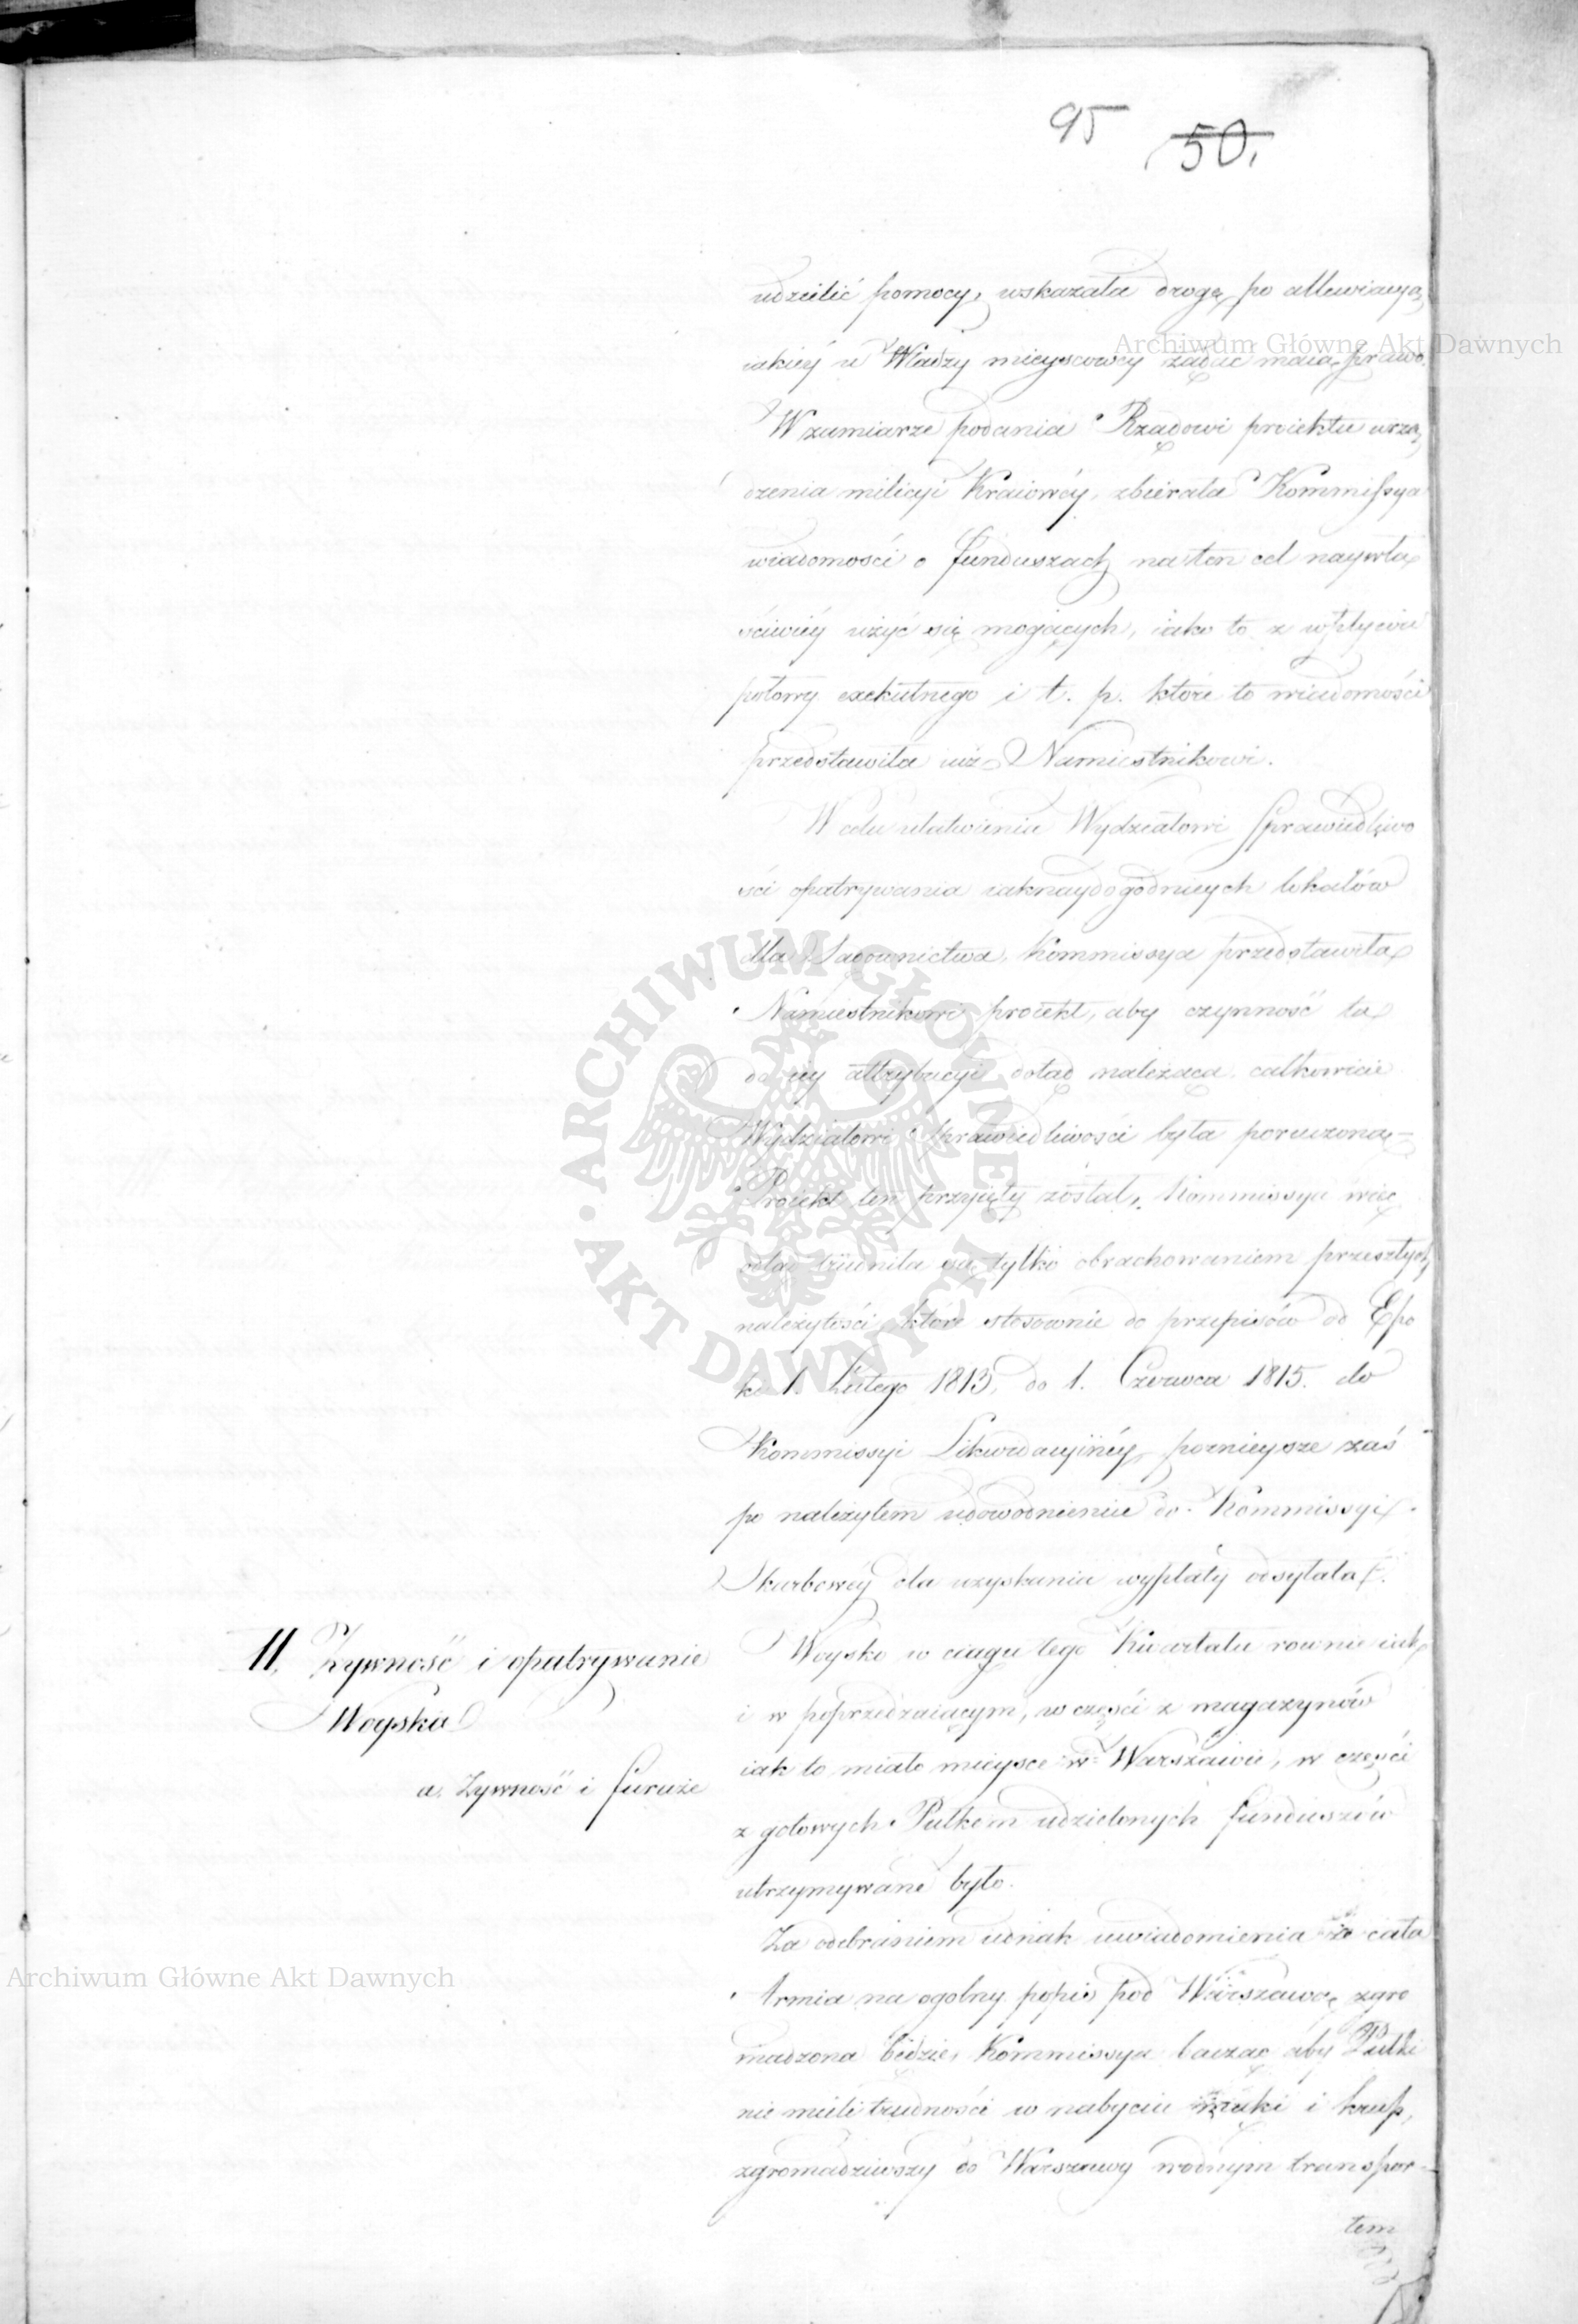 95 50.
udzielić pomocy, wskazała drogę po allewiacyą,
iakiéy u Władzy mieyscowey żądać maią prawo.
W zamiarze podania Rządowi proiektu urzą,
dzenia milicyi Kraiowéy, zbierała Kommissya
wiadomości o funduszach na ten cel naywła
ściwiéy użyć się mogących, iako to z wpływu
połowy exekutnego i t. p. które to wiadomości
przedstawiła iuż Namiestnikowi.
W celu ułatwienia Wydziałowi Sprawiedliwo
ści opatrywania iaknaydogodnieych lokalów
dla Sądownictwa, Kommissya przedstawiła
Namiestnikowi proiekt, aby czynność ta
do iéy attrybucyi dotąd należąca całkowicie
Wydziałowi Sprawiedliwości była poruczoną -
Proiekt ten przyięty został, Kommissya więc
odtąd trudniła się tylko obrachowaniem przeszłych
należytości, które stosownie do przepisów od Epo
ki 1. Lutego 1813, do 1. Czerwca 1815. do
Kommissyi Likwidacyinéy, poznieysze zaś
po należytem udowodnieniu do Kommissyi
Skarbowéy dla uzyskania wypłaty odsyłała.
11. Żywność i opatrywanie
Woyska
a. Żywność i furaże
Woysko w ciągu tego Kwartału rownie iak
i w poprzedzaiącym, w części z magazynów
iak to miało mieysce w Warszawie, w części
z gotowych Pułkom udzielonych funduszów
utrzymywane było.
Za odebraniem iednak uwiadomienia że cała
Armia na ogolny popis pod Warszawę zgro
madzona będzie, Kommissya bacząc aby Pułki
nie mieli trudności w nabyciu mąki i krup,
zgromadziwszy do Warszawy wodnym transpor-
tem
Archiwum Główne Akt Dawnych
Archiwum Główne Akt Dawnych
ARCHIWUM GŁÓWNE · AKT DAWNYCH ·